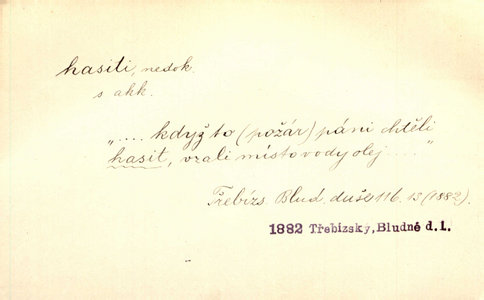 hasiti, nedok.
s akk.
„.... když to (požár) páni chtěli
hasit, vzali místo vody olej ...."
Třebízs. Blud. duše 116. 13 (1882).
1882 Třebízský, Bludné d. 1.